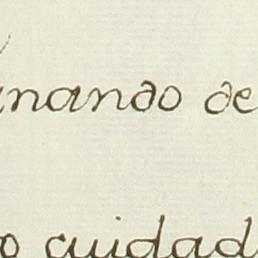 nando de
o cuidad